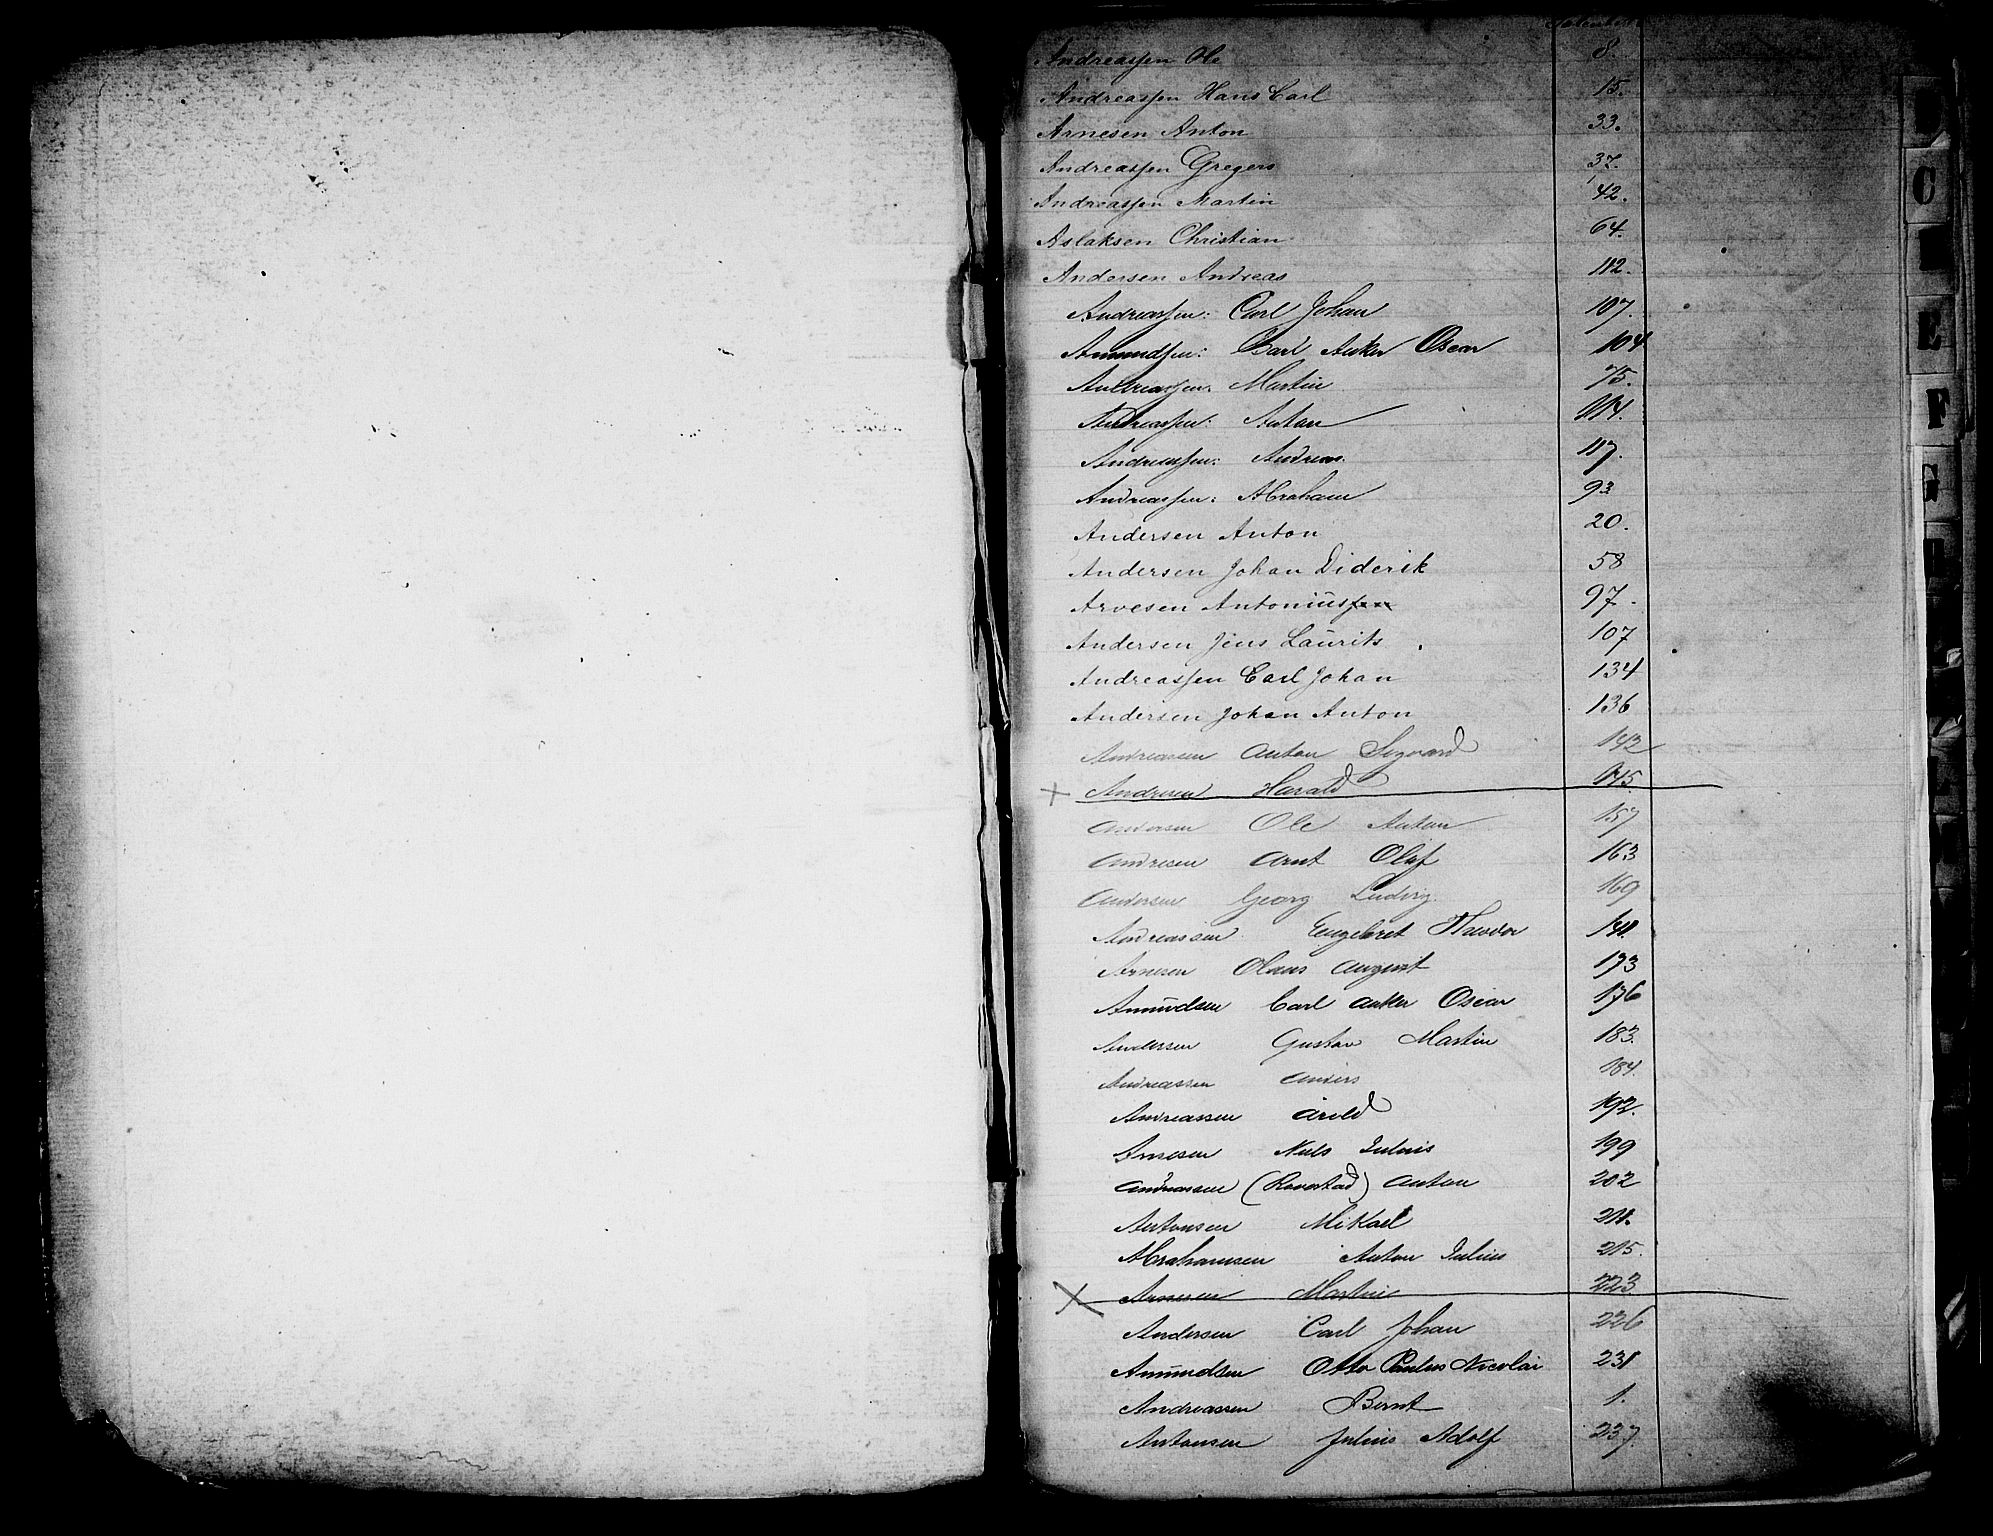 Andreasſen Ole 8.
Andreasſen Hans Carl 15.
Arnesen Anton 33.
Andreasſen Gregers 37.
Andreasſen Martin 42.
Aslaksen Christian 64.
Andersen Andreas 112.
Andreasſen: Carl Johan 107.
Amundſen: Carl Anker Oscar 104
Andreasſen. Martin 75.
Andreasſen: Anton 114.
Andreasſen: Andreas. 117.
Andreasſen: Abraham 93
Andersen Anton 20.
Andersen Johan Diderik 58
Arvesen Antoniusſen 97.
Andersen Jens Laurits 107
Andreasſen Carl Johan 134
Andersen Johan Anton 136
Andreassen Anton Sigvard 142
Andresen Harald 145.
Andersen Ole Anton 157
Andresen Arnt Olaf 163
Andersen Georg Ludvig. 169
Andreassen Engebret Theodor 141.
Arnesen Olaus August 173
Amundsen Carl Anker Oscar 176
Andersen Gustav Martin 183.
Andreassen Anders 184.
Andreassen Arild 192.
Arnesen Niels Julius 199
Andreassen (Ravestad) Anton 202
Antonsen Mikael 211.
Abrahamsen Anton Julius 215.
Arnesen Martin 223
Andersen Carl Johan 226
Amundsen Otto Paulus Nicolai 231
Andreassen Bernt 1.
Antonsen Julius Adolf 237.
C
E
F
G